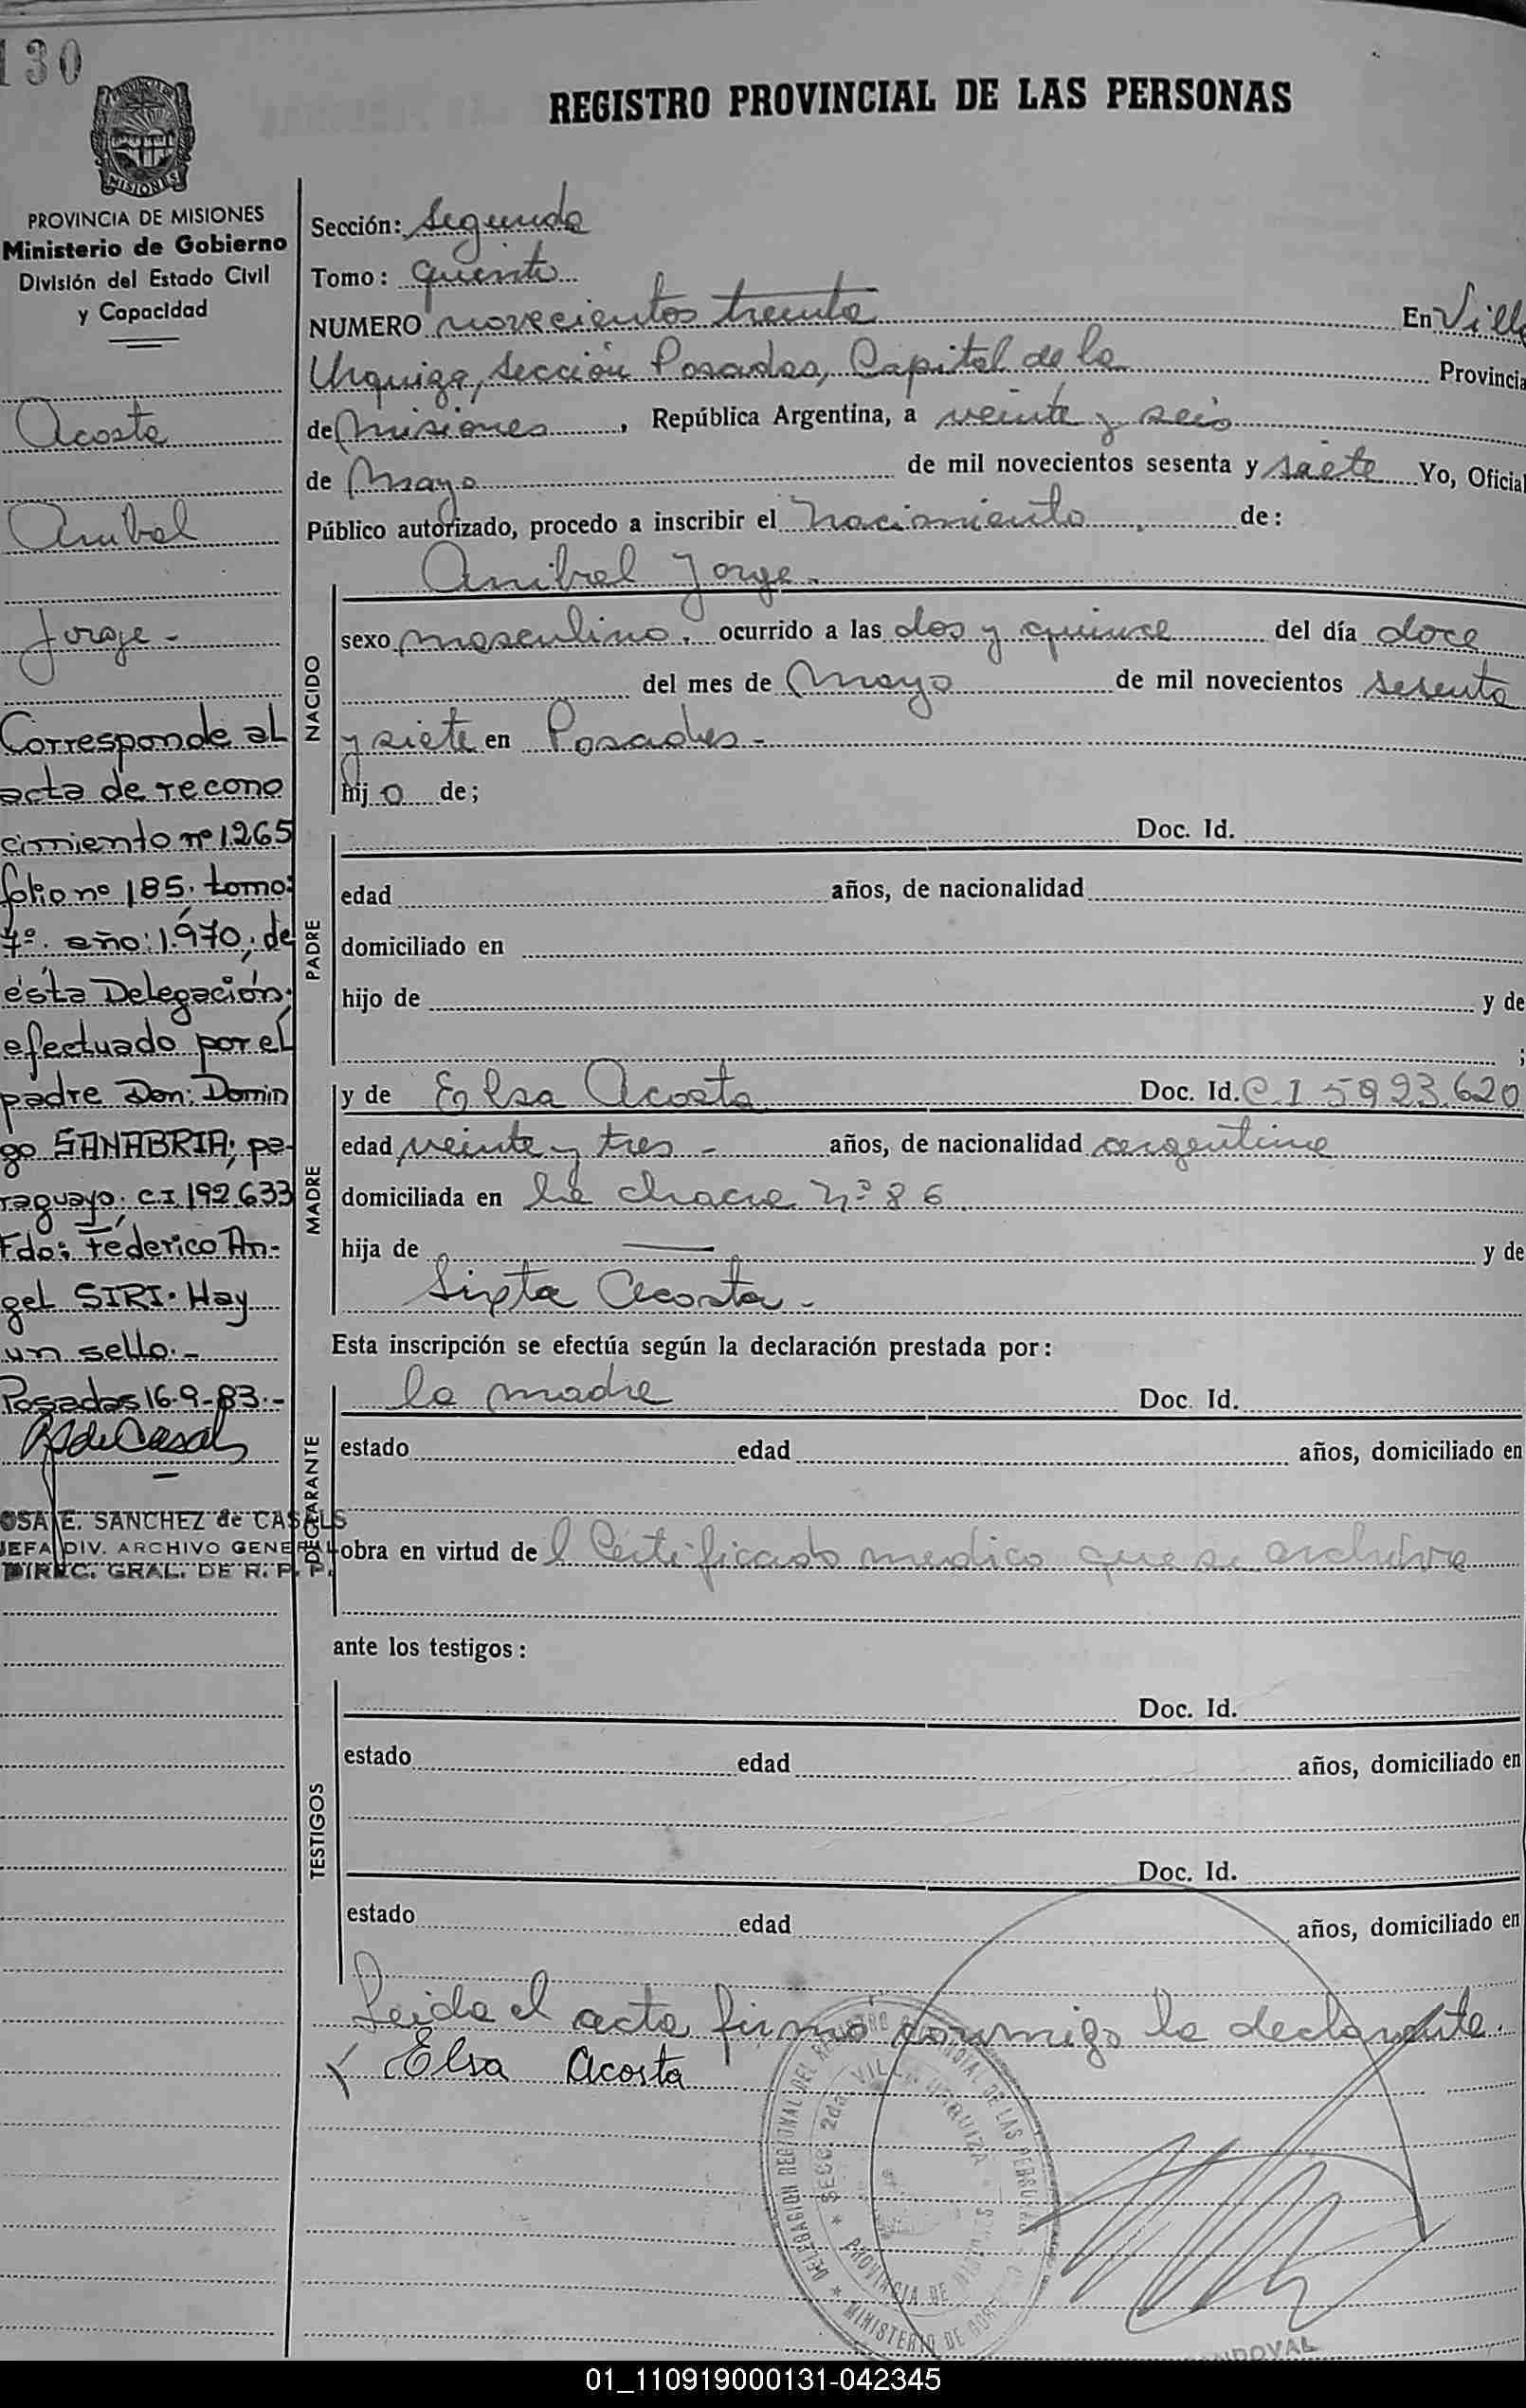 130
REGISTRO PROVINCIAL DE LAS PERSONAS
MISIONES
PROVINCIA DE MISIONES
Ministerio de Gobierno
División del Estado Civil
y Capacidad
Acosta
Anibal
Jorge -
Corresponde al
acta de recono
cimiento nº 1265
folio nº 185, tomo:
4º. año: 1.970, de
ésta Delegación;
efectuado por el
padre Don: Domin
go SANABRIA; pa-
raguayo; C.I. 192.633
Fdo: Féderico An-
gel SIRI. Hay
un sello.-
Posadas 16-9-83.-
OSA E. SANCHEZ de CASALS
JEFA DIV. ARCHIVO GENERAL
DIREC. GRAL. DE R. P. P.
Sección: Segunda
Tomo: Quinto
NUMERO novecientos treinta En Villa
Urquiza, Sección Posadas, Capital de la Provincia
de Misiones, República Argentina, a veinte y seis
de Mayo de mil novecientos sesenta y siete Yo, Oficial
Público autorizado, procedo a inscribir el Nacimiento de:
NACIDO
Anibal Jorge.
sexo masculino, ocurrido a las dos y quince del día doce
del mes de Mayo de mil novecientos sesenta
y siete en Posadas -
hijo de;
PADRE
Doc. Id.
edad años, de nacionalidad
domiciliado en
hijo de y de
;
MADRE
y de Elsa Acosta Doc. Id. C.I 5.923.620
edad veinte y tres - años, de nacionalidad argentina
domiciliada en la chacra Nº 86
hija de — y de
Sixta Acosta -
Esta inscripción se efectúa según la declaración prestada por:
DECLARANTE
la madre Doc. Id.
estado edad años, domiciliado en
obra en virtud de l Certificado medico que se archiva
ante los testigos:
TESTIGOS
Doc. Id.
estado edad años, domiciliado en
Doc. Id.
estado edad años, domiciliado en
Leida el acta firmó conmigo la declarante.
Elsa Acosta
DELEGACION REGIONAL DEL REGISTRO PROVINCIAL DE LAS PERSONAS
SECC. 2da. VILLA URQUIZA
PROVINCIA DE MISIONES
MINISTERIO DE GOBIERNO
01_110919000131-042345